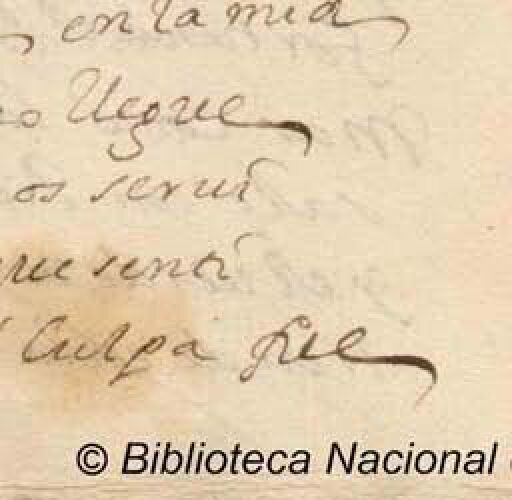 en la mia
llegue
os serui
que senti
Culpa fue
© Biblioteca Nacional